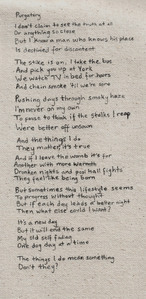 Purgatory
I don't claim to see the truth at all
Or anything so close
But I know a man who knows his place
Is destined for discontent
The sale is on, I take the bus
And pick you up at York
We watch TV in bed for hours
And chain smoke 'til we're sore
Pushing days through smoky haze
I'm never on my own
To pause to think if the stalks I reap
Were better off unsown
And the things I do
They matter, it's true
And if I leave the womb it's for
Another with more warmth
Drunken nights and pool hall fights
They feel like being born
But sometimes this lifestyle seems
To progress without thought
But if each day leads a better night
Then what else could I want?
It's a new day
But it will end the same
My old self fades
One dog day at a time
The things I do mean something
Don't they?